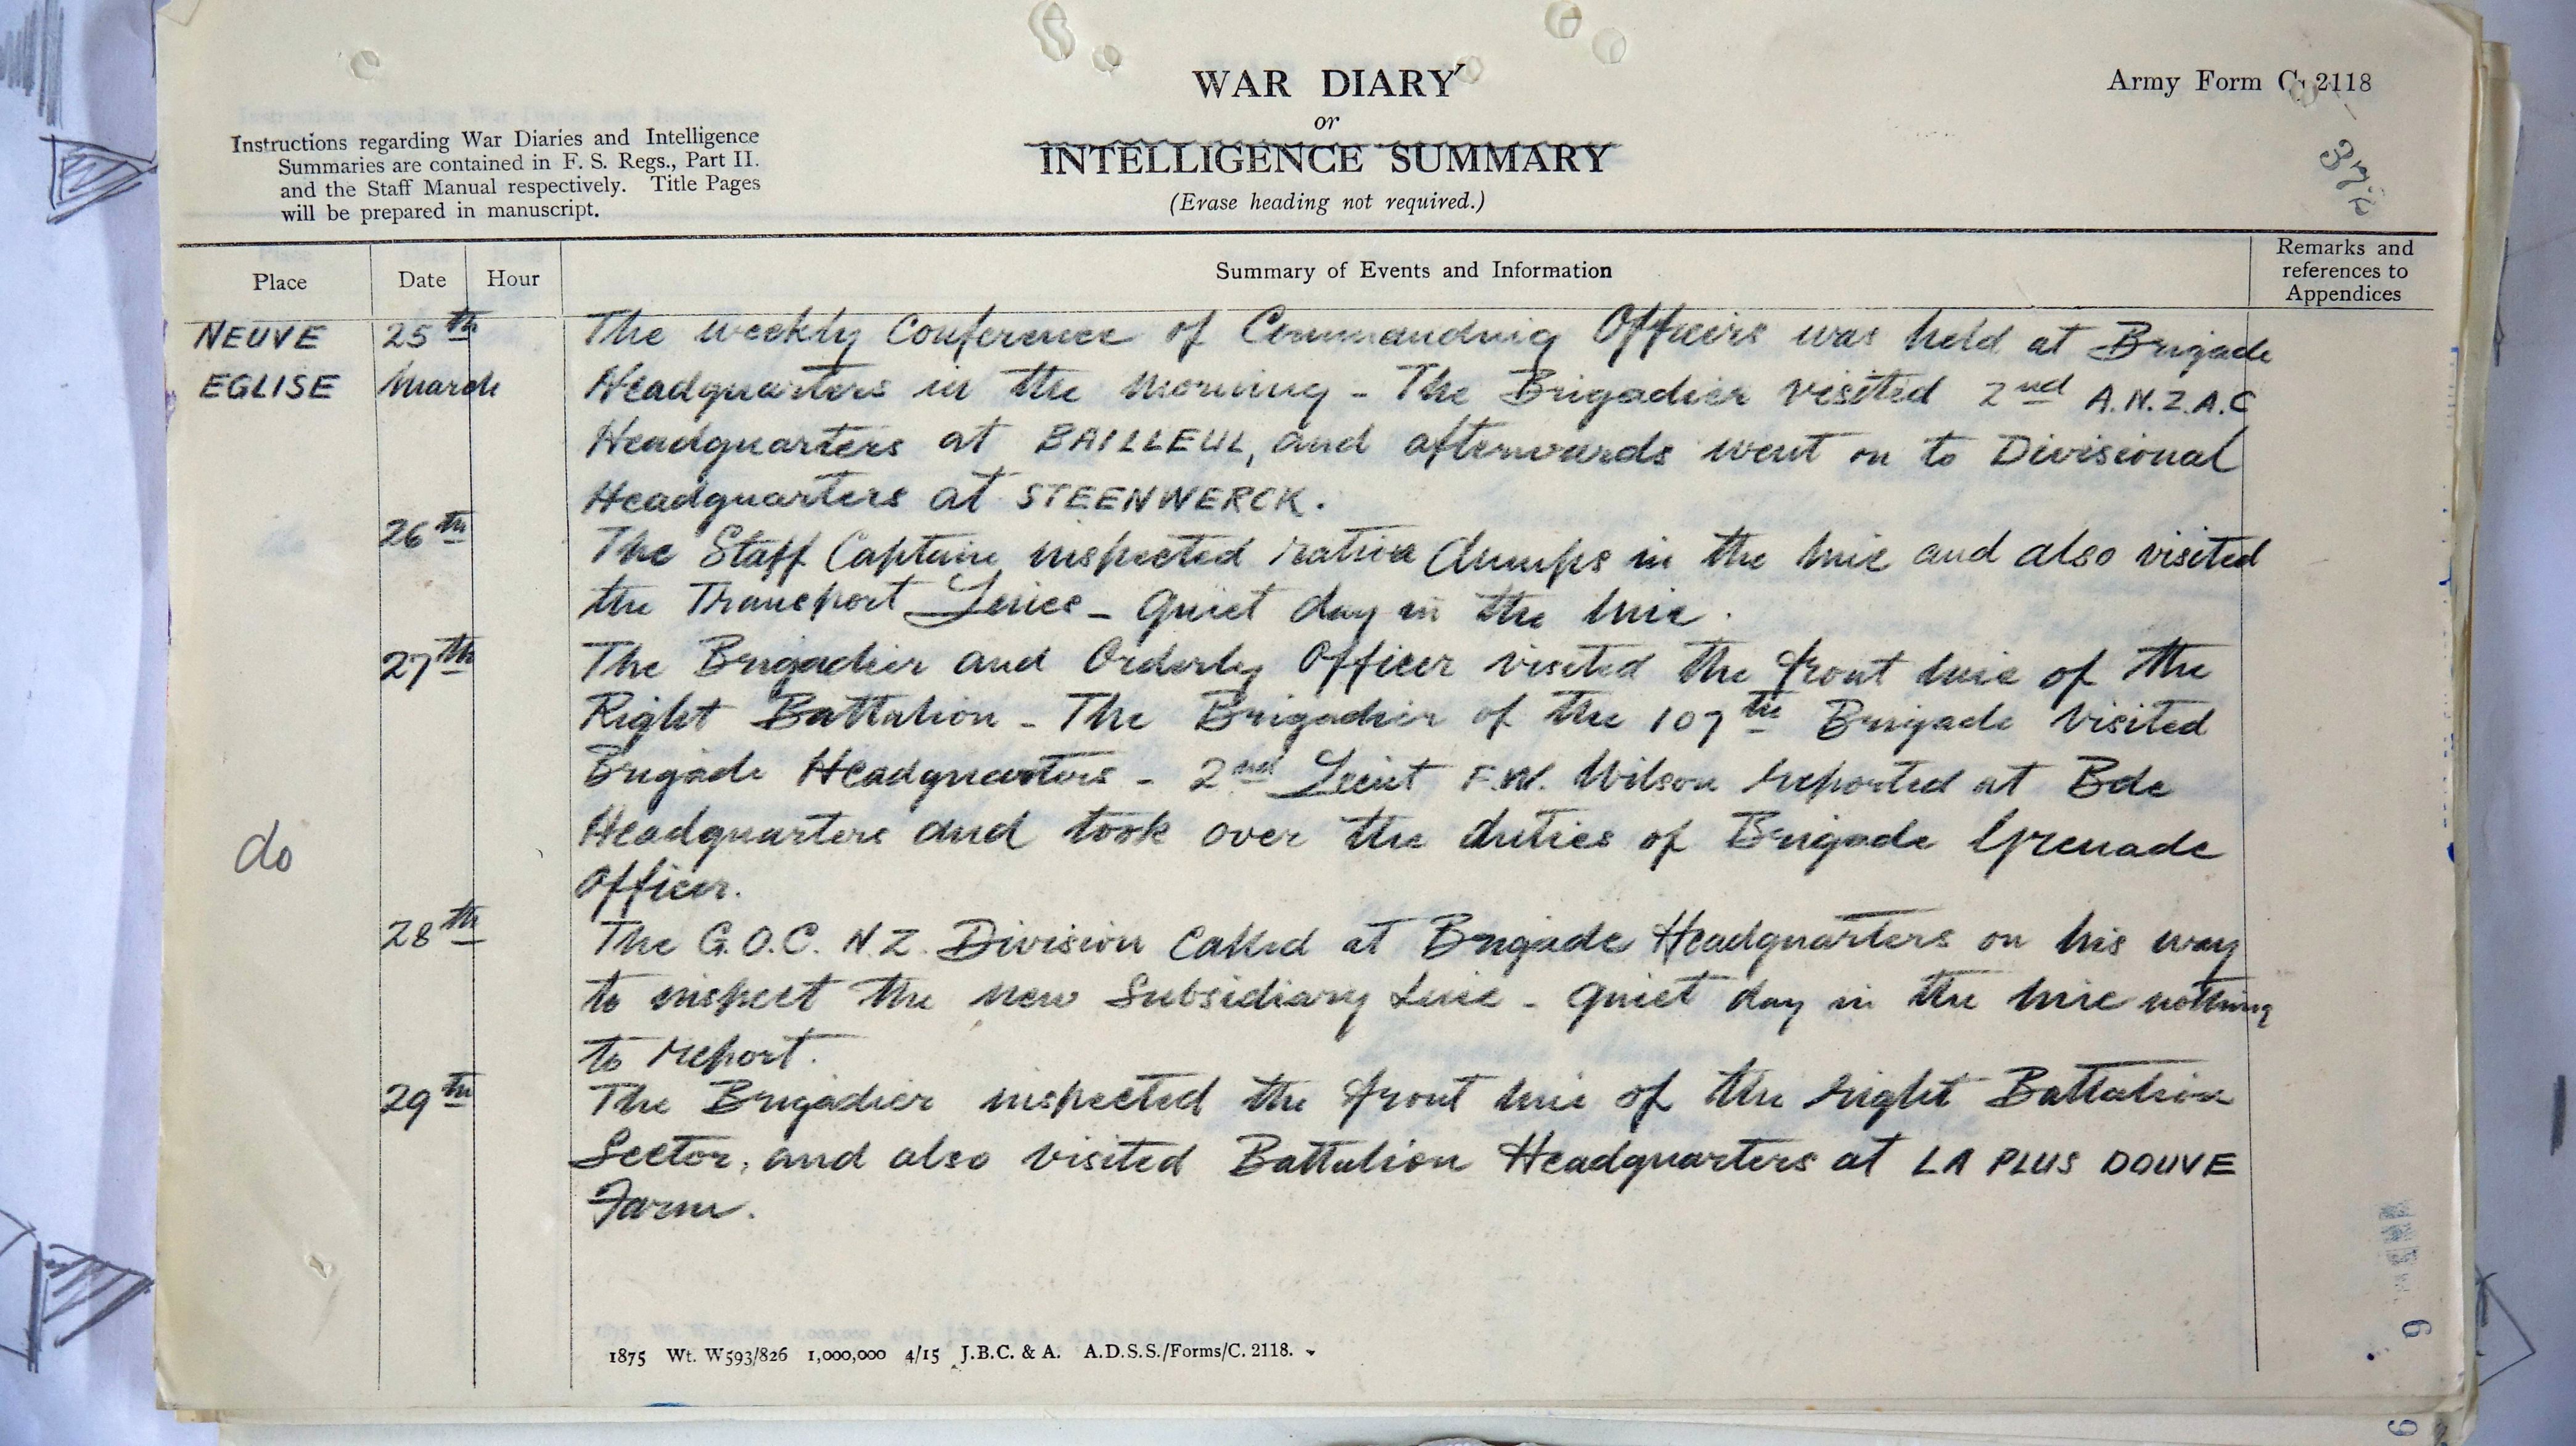 WAR DIARY
or
INTELLIGENCE SUMMARY
(Erase heading not required.)
Army Form C. 2118
Instructions regarding War Diaries and Intelligence
Summaries are contained in F. S. Regs., Part II.
and the Staff Manual respectively. Title Pages
will be prepared in manuscript.
Place Date Hour Summary of Events and Information Remarks and references to Appendices
NEUVE 25th The weekly Conference of Commanding Officers was held at Brigade
EGLISE March Headquarters in the morning - The Brigadier visited 2nd A.N.Z.A.C
Headquarters at BAILLEUL, and afterwards went on to Divisional
Headquarters at STEENWERCK.
26th The Staff Captain inspected ration dumps in the line and also visited
the Transport Lines - Quiet day in the line.
27th The Brigadier and Orderly Officer visited the front line of the
Right Battalion - The Brigadier of the 107th Brigade visited
Brigade Headquarters - 2nd Lieut F.W. Wilson reported at Bde
do Headquarters and took over the duties of Brigade Grenade
Officer.
28th The G.O.C. N.Z. Division called at Brigade Headquarters on his way
to inspect the new Subsidiary Line - Quiet day in the line nothing
to report.
29th The Brigadier inspected the front line of the right Battalion
Sector, and also visited Battalion Headquarters at LA PLUS DOUVE
Farm.
1875 Wt. W593/826 1,000,000 4/15 J.B.C. & A. A.D.S.S./Forms/C. 2118.